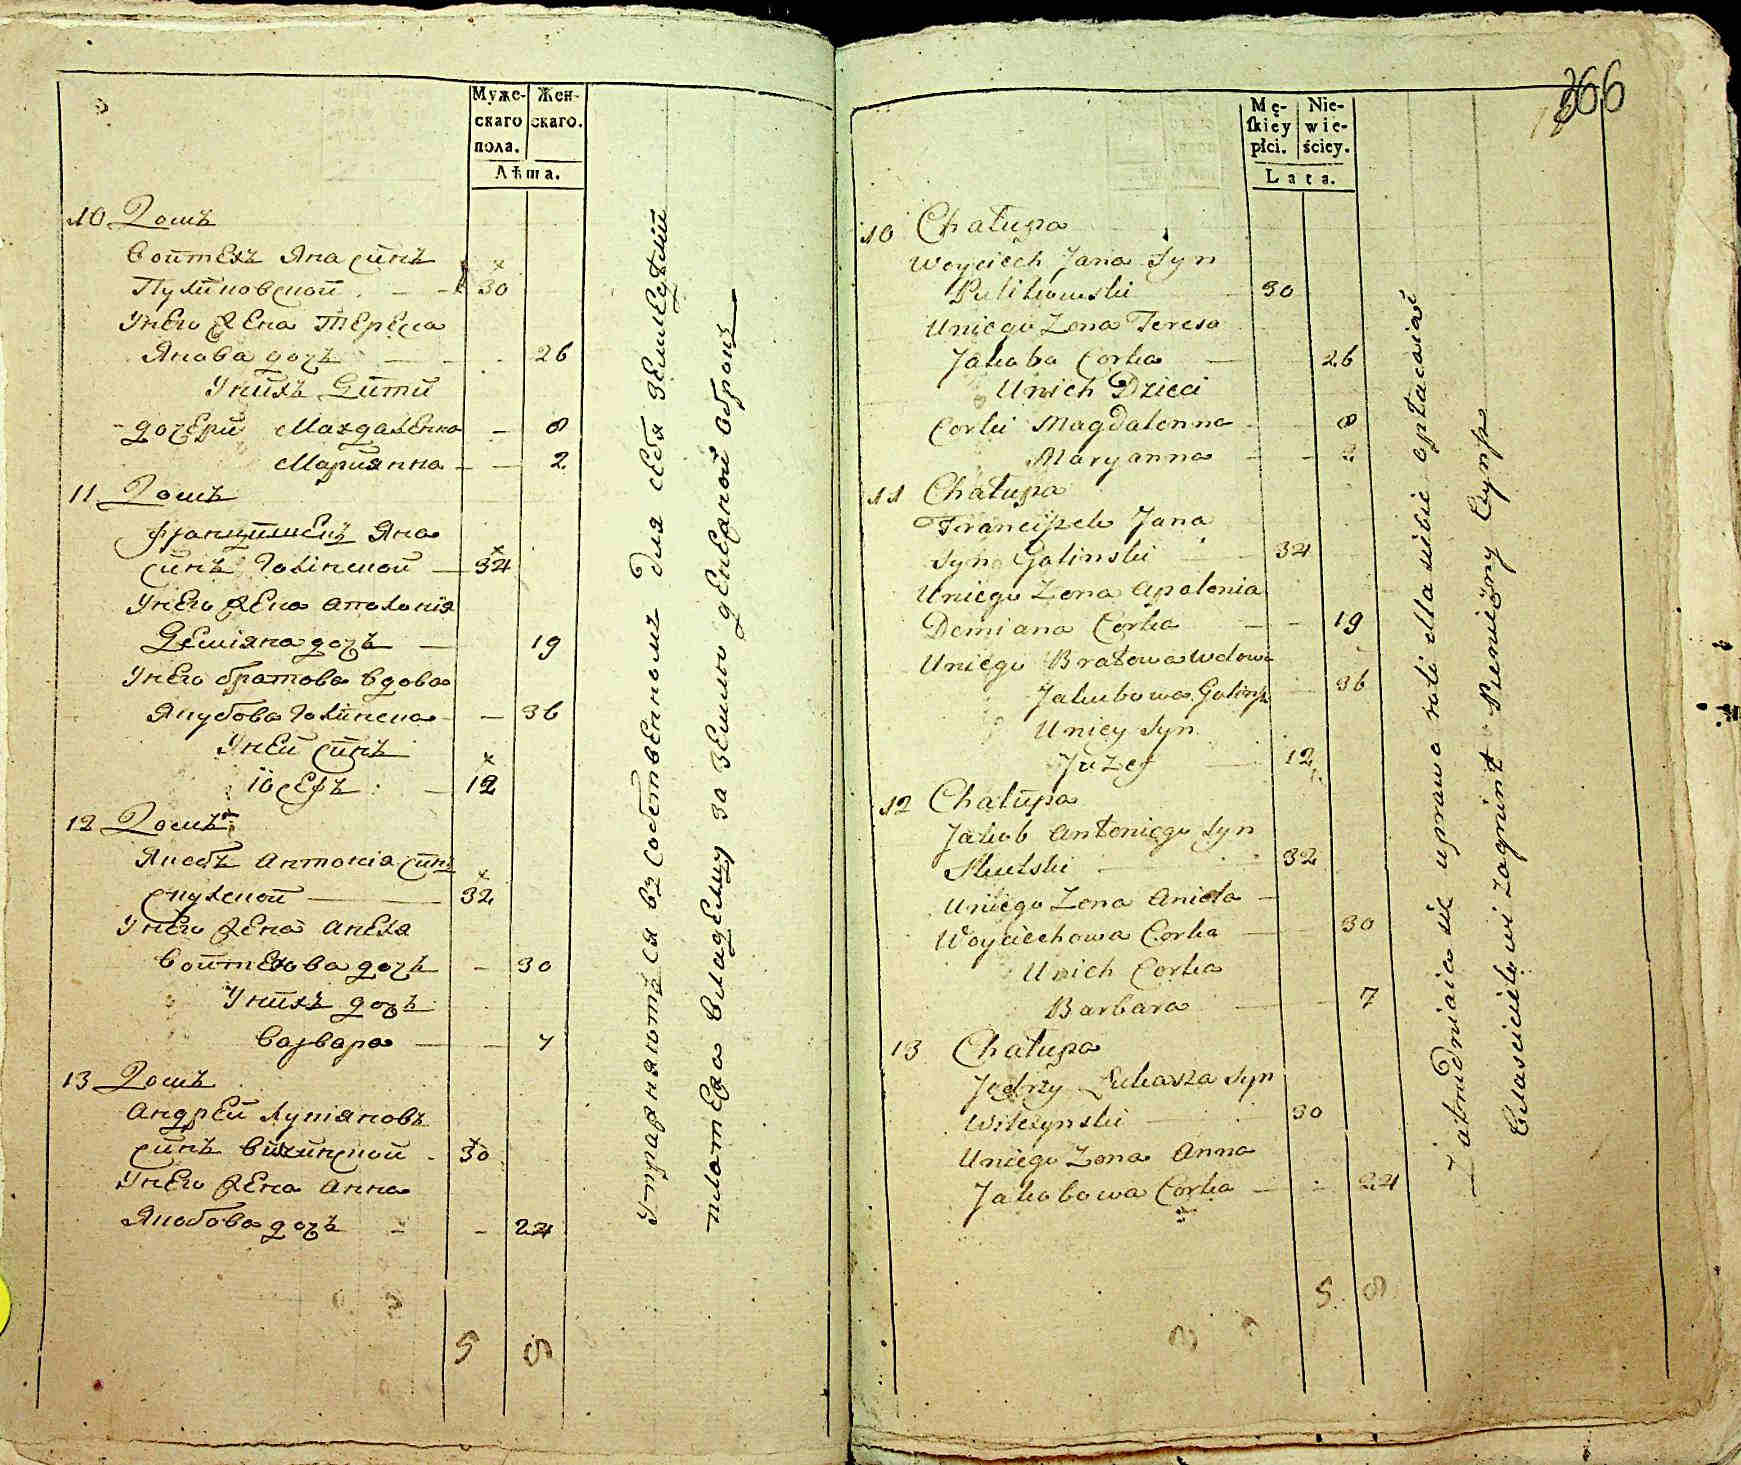 Муже-
скаго
пола.
Жен-
скаго.
Лѣта.
10 Домъ
Войтехъ Яна синъ
Пуликовской 30
Унего жена Тереса
Якова дочъ 26
Унихъ Дити
дочери Магдаленна 8
Марианна 2
11 Домъ
Францишекъ Яна
синъ Голинской 34
Унего жена Аполониа
Демiана дочъ 19
Унего братова вдова
Якубова Голинска 36
Уней синъ
Iосефъ 12
12 Домъ
Якобъ Антонiа синъ
32
Унего жена Анеля
Войтехова дочъ 30
Унихъ дочъ
Варвара 7
13 Домъ
Андрей Лукiяновъ
синъ Вилчинской 30
Унего жена Анна
Якобова дочъ 24
5 8
Упражняются въ собственномъ для себя земледѣлии
платежа владелцу за землю денежной оброкъ
366
Mę-
skiey
płci.
Nie-
wie-
ściey.
Lata.
10 Chałupa
Woyciech Jana Syn
Pulikowski 30
Uniego Zona Teresa
Jakoba Corka 26
Unich Dzieci
Corki Magdalenna 8
Maryanna 2
11 Chałupa
Franciszek Jana
Syn Golinski 34
Uniego Zona Apolonia
Demiana Corka 19
Uniego Bratowa wdowa
Jakubowa Golinsk 36
Uniey Syn
Juzef 12
12 Chałupa
Jakob Antoniego Syn
32
Uniego Zona Aniela
Woyciechowa Corka 30
Unich Corka
Barbara 7
13 Chałupa
Jędrzy Łukasza Syn
Wilczynski 30
Uniego Zona Anna
Jakobowa Corka 24
5 8
Zatrudniaia się uprawą roli dla siebie opłacaiąc
Włascicielowi zagrunt Pieniężny Czynsz